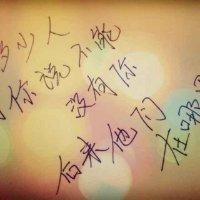 多少人
对你说不能
没有你
后来他们
在哪里